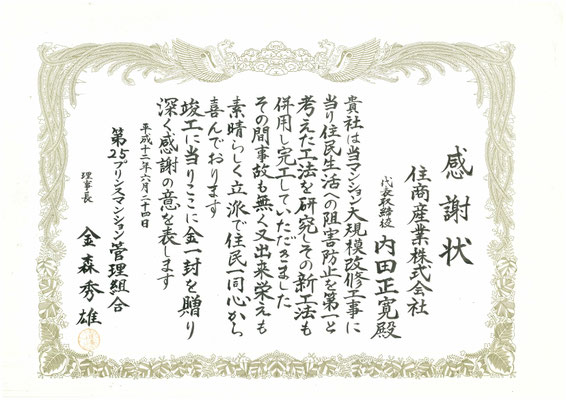 感謝状
住商産業株式会社
代表取締役 内田正寛殿
貴社は当マンション大規模改修工事に
当り住民生活への阻害防止を第一と
考えた工法を研究しその新工法も
併用し完工していただきました
その間事故も無く又出来栄えも
素晴らしく立派で住民一同心から
喜んでおります
竣工に当りここに金一封を贈り
深く感謝の意を表します
平成十二年六月二十四日
第25プリンスマンション管理組合
理事長 金森秀雄